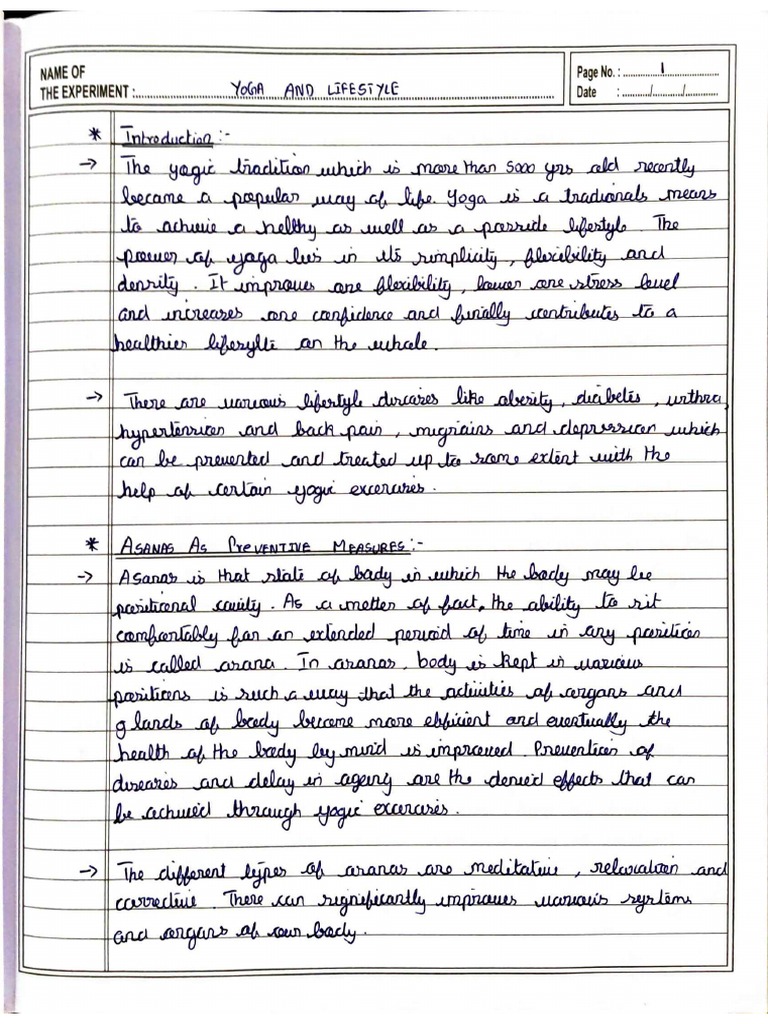 NAME OF
THE EXPERIMENT : YOGA AND LIFESTYLE
Page No. : 1
Date : / /
* Introduction :-
→ The yogic tradition which is more than 5000 yrs old recently
became a popular way of life. Yoga is a tradionals means
to achieve a helthy as well as a posside lifestyle. The
power of yoga lies in its simplicity, flexibility and
density. It improves one flexibility, lower one stress level
and increases one confidence and finally contributes to a
healthier lifesyltle on the whole.
→ There are various lifestyle diseases like obesity, diabetes,
hypertension and back pain, migrains and depression which
can be prevented and treated up to some extent with the
help of certain yogic excercises.
* ASANAS AS PREVENTIVE MEASURES :-
→ Asanas is that state of body in which the body may be
positional cavity. As a matter of fact, the ability to sit
comfortably for an extended period of time in any position
is called asana. In asanas, body is kept in various
positions is such a way that the activities of organs and
glands of body become more efficient and eventually the
health of the body by mind is improved. Prevention of
diseases and delay in ageing are the denied effects that can
be achieved through yogic excercises.
→ The different types of asanas are meditative, relaxation and
corrective. There can significantly improves various systems
and organs of our body.